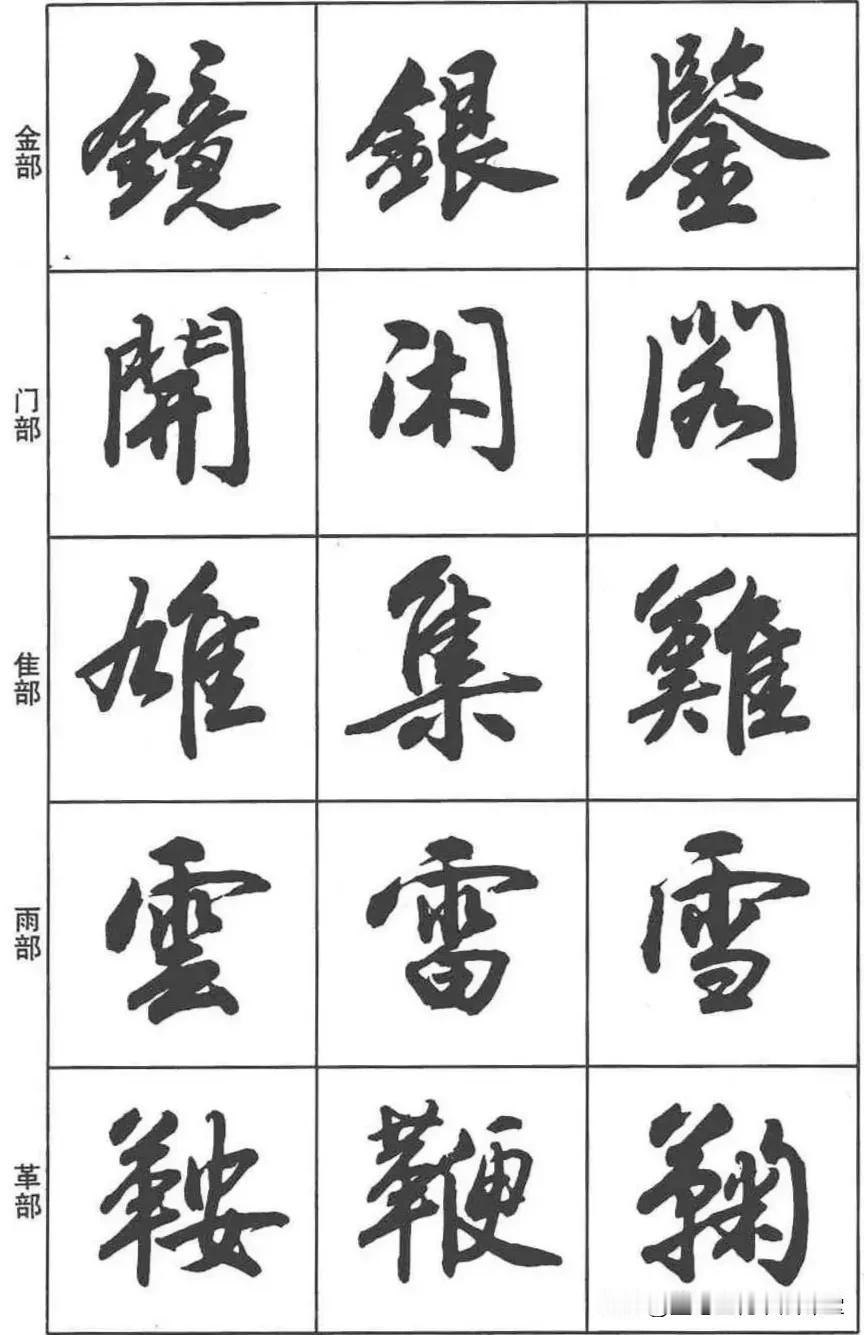 金部 鏡 銀 鑒
门部 開 闲 阁
隹部 雄 集 雞
雨部 雲 雷 雪
革部 鞍 鞭 鞠